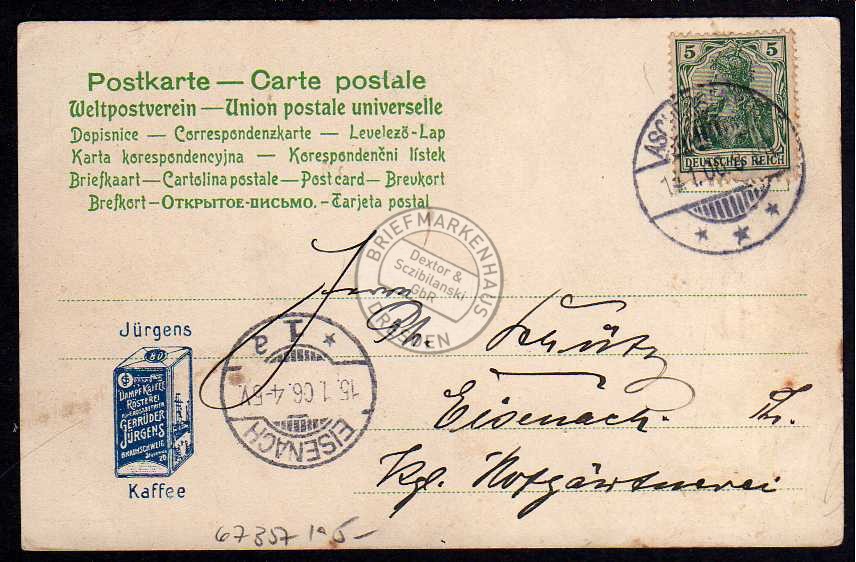 Postkarte — Carte postale
Weltpostverein — Union postale universelle
Dopisnice — Correspondenzkarte — Levelező-Lap
Karta korespondencyjna — Korespondenčni lístek
Briefkaart — Cartolina postale — Post card — Brevkort
Brefkort — Открытое-письмо. — Tarjeta postal
5 5
DEUTSCHES REICH
BRIEFMARKENHAUS
Dextor &
Sczibilanski
GbR
DRESDEN
Herrn
Schütz
Eisenach. Th.
Kgl. Hofgärtnerei
EISENACH
15.1.06.4-5V.
1 a
Jürgens
80
DAMPF KAFFEE
RÖSTEREI
GEBRÜDER
JÜRGENS
BRAUNSCHWEIG
Kaffee
67357 195-